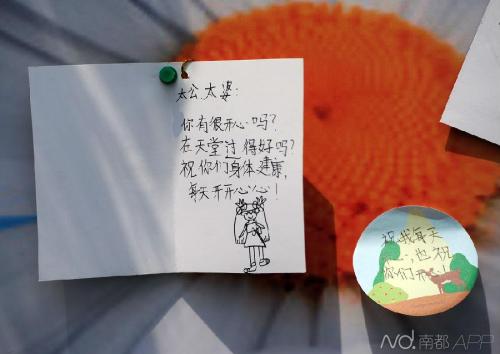 太公、太婆:
你有很开心吗?
在天堂过得好吗?
祝你们身体健康,
每天开开心心!
祝我每天
,也祝
你们开心!
N.南都APP